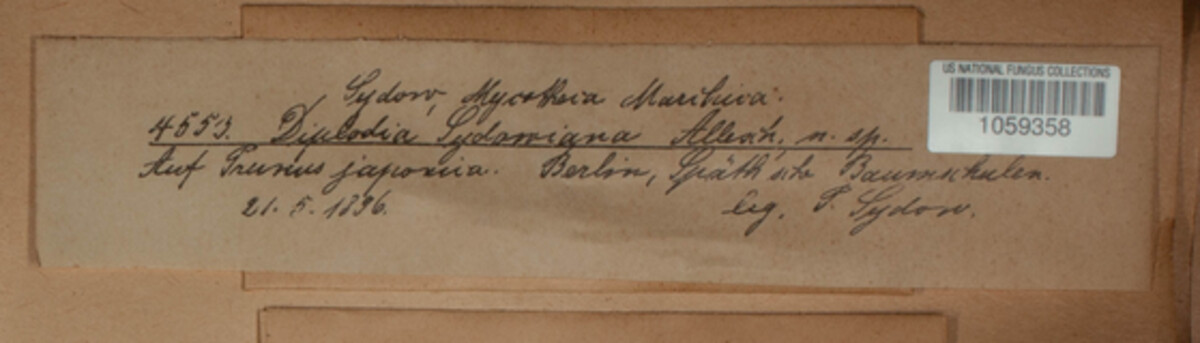 Sydow, Mycotheca Marchica.
4553. Diplodia Sydowiana Allesch., n. sp.
Auf Prunus japonica. Berlin, Späth'sche Baumschulen.
21. 5. 1896. leg. P. Sydow.
US NATIONAL FUNGUS COLLECTIONS
1059358